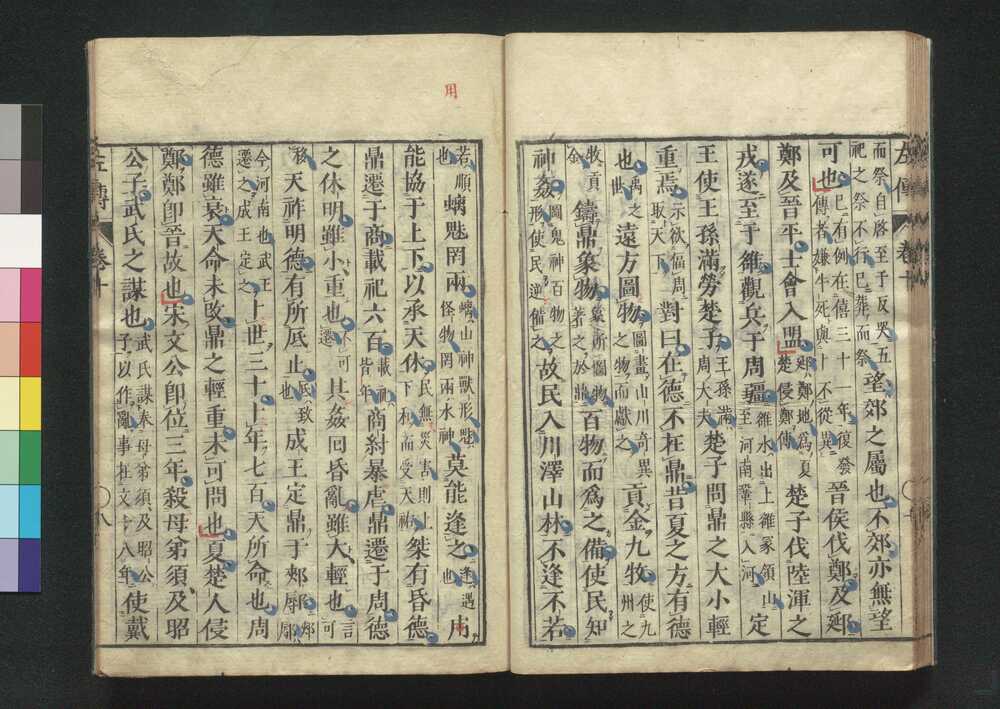 左傳 卷十
而祭自啓至于反哭五祀之祭不行已葬而祭望郊之屬也不郊亦無望
可也已有例在僖三十一年復發傳者嫌牛死與卜不從異晉侯伐鄭及郔
鄭及晉平士會入盟郔鄭地爲夏楚侵鄭傳楚子伐陸渾之
戎遂至于雒觀兵于周疆雒水出上雒冢領山至河南鞏縣入河定
王使王孫滿勞楚子王孫滿周大夫楚子問鼎之大小輕
重焉示欲偪周取天下對曰在德不在鼎昔夏之方有德
也禹之世遠方圖物圖畫山川奇異之物而獻之貢金九牧使九州之
牧貢金鑄鼎象物象所圖物著之於鼎百物而爲之備使民知
神姦圖鬼神百物之形使民逆備之故民入川澤山林不逢不若
用
若順也螭魅罔兩螭山神獸形魅怪物罔兩水神莫能逢之逢遇也用
能協于上下以承天休民無災害則上下和而受天祐桀有昏德
鼎遷于商載祀六百載祀皆年商紂暴虐鼎遷于周德
之休明雖小重也不可遷其姦回昏亂雖大輕也言可
移天祚明德有所厎止厎致也成王定鼎于郟鄏郟鄏
今河南也武王遷之成王定之卜世三十卜年七百天所命也周
德雖衰天命未改鼎之輕重未可問也夏楚人侵
鄭鄭即晉故也宋文公即位三年殺母弟須及昭
公子武氏之謀也武氏謀奉母弟須及昭公子以作亂事在文十八年使戴
左傳 卷十 八